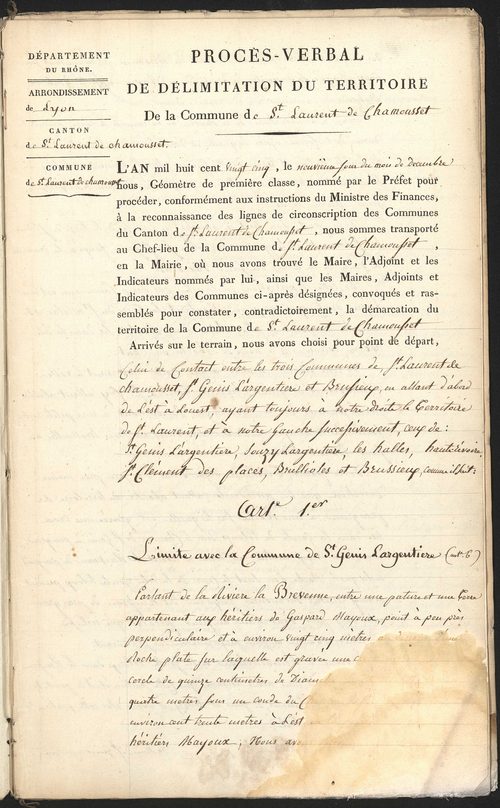 DÉPARTEMENT
DU RHÔNE.
ARRONDISSEMENT
de Lyon
CANTON
de St. Laurent de chamousset.
COMMUNE
de St. Laurent de chamousset
PROCÈS-VERBAL
DE DÉLIMITATION DU TERRITOIRE
De la Commune de St. Laurent de Chamousset
L'AN mil huit cent vingt cinq, le neuvième jour du mois de decembre
nous, Géomètre de première classe, nommé par le Préfet pour
procéder, conformément aux instructions du Ministre des Finances,
à la reconnaissance des lignes de circonscription des Communes
du Canton de St. Laurent de Chamousset, nous sommes transporté
au Chef-lieu de la Commune de St. Laurent de Chamousset,
en la Mairie, où nous avons trouvé le Maire, l'Adjoint et les
Indicateurs nommés par lui, ainsi que les Maires, Adjoints et
Indicateurs des Communes ci-après désignées, convoqués et ras-
semblés pour constater, contradictoirement, la démarcation du
territoire de la Commune de St. Laurent de Chamousset
Arrivés sur le terrain, nous avons choisi pour point de départ,
Celui de Contact entre les trois Communes de St. Laurent de
chamousset, St. Genis L'argentiere et Brussieux, en allant d'abord
de L'èst à Louest, ayant toujours à notre droite le Territoire
de St. Laurent, et à notre Gauche successivement, ceux de:
St. Genis Largentière, Souzy Largentière, les halles, hauterivoire,
St. Clément des places, Brullioles et Brussieux, comme il suit:
Art. 1.er
Limite avec la Commune de St. Genis Largentiere (art. 6)
Partant de la rivière la Brevenne, entre une pature et une Terre
appartenant aux héritiers de Gaspard Mayoux, point à peu près
perpendiculaire et à environ vingt cinq mètres
Roche plate sur laquelle est gravé une
cercle de quinze centimètres de
quatre mètres sous un coude du
environ cent trente mètres à L'èst
héritiers Mayoux; Nous